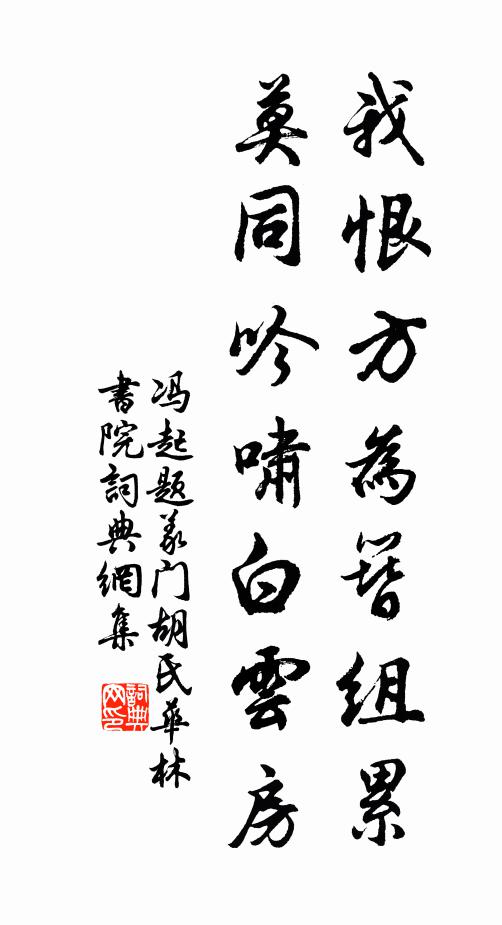 我恨方為簪組累
莫同吟嘯白雲房
冯起题义门胡氏華林
書院詞典網集
詞典网印